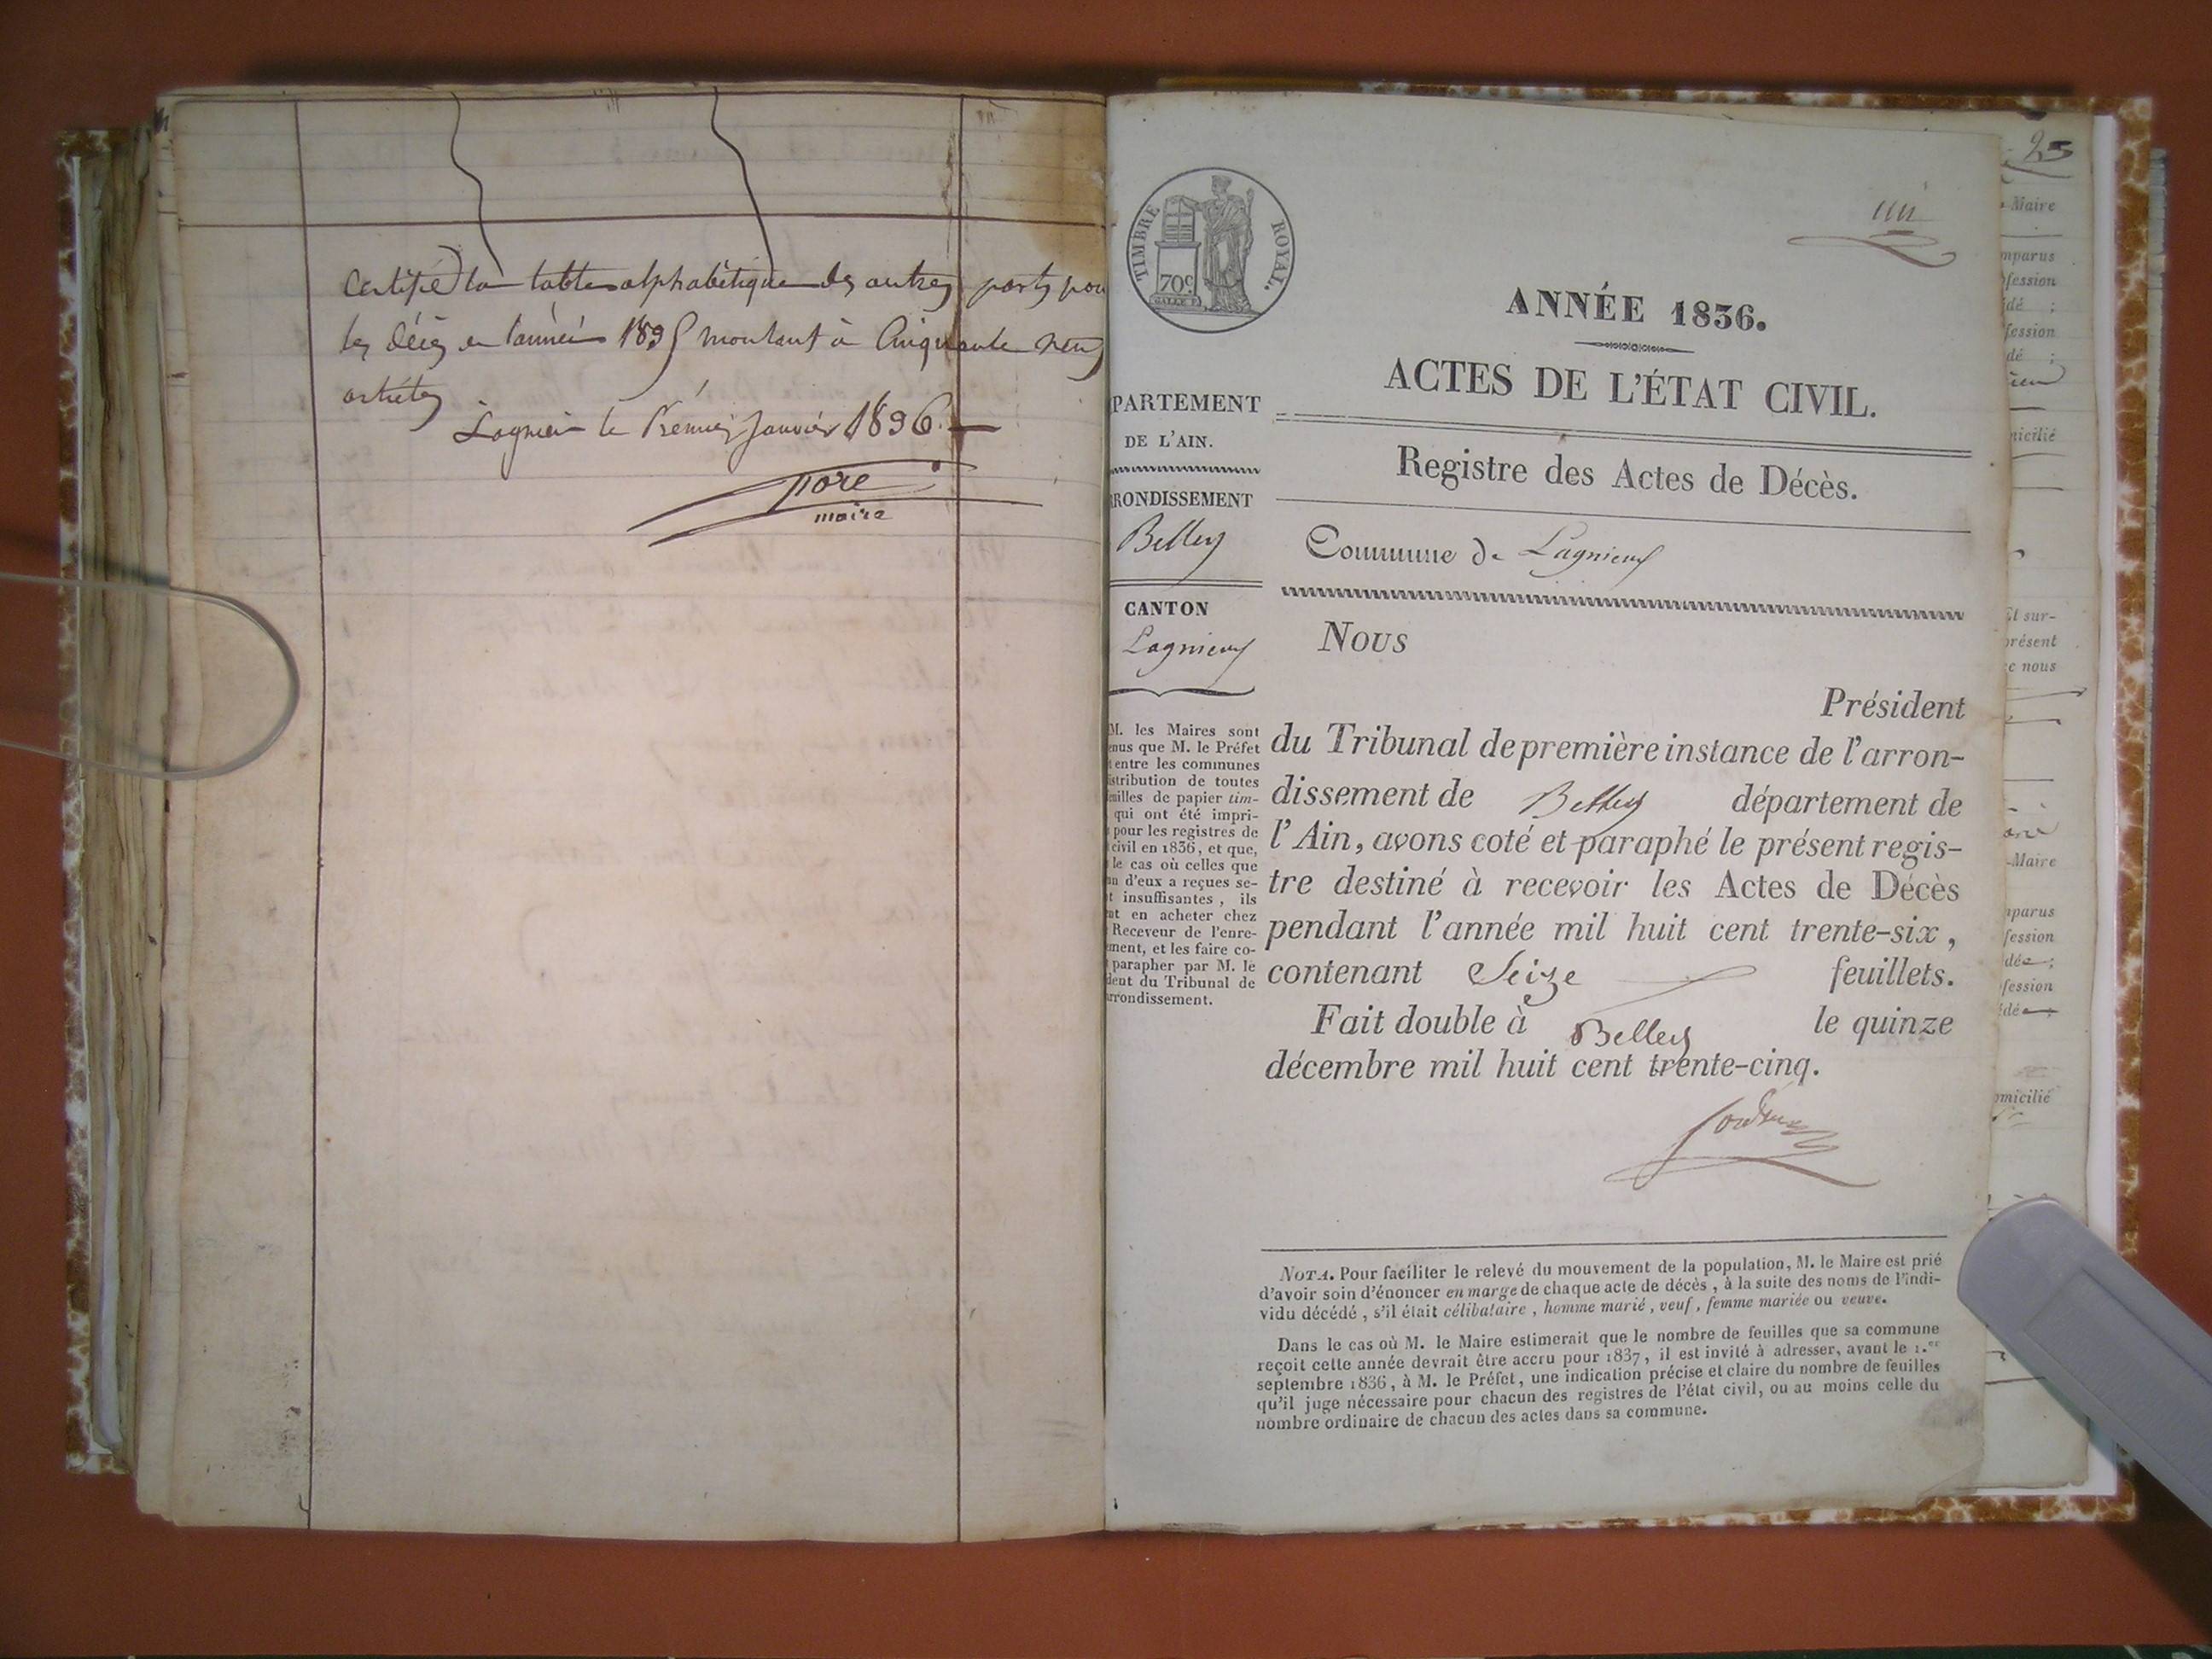 Certifié la table alphabétique des autres parts pou
les décès en l'année 1835 montant à Cinquante neuf
articles
Lagnieu le Premier Janvier 1836.
pore
maire
TIMBRE ROYAL.
70c
ANNÉE 1836.
ACTES DE L'ÉTAT CIVIL.
PARTEMENT
DE L'AIN.
RONDISSEMENT
Belley
CANTON
Lagnieu
M. les Maires sont
enus que M. le Préfet
t entre les communes
istribution de toutes
euilles de papier tim-
qui ont été impri-
pour les registres de
civil en 1836, et que,
le cas où celles que
un d'eux a reçues se-
t insuffisantes, ils
nt en acheter chez
Receveur de l'enre-
ement, et les faire co-
parapher par M. le
dent du Tribunal de
rrondissement.
Registre des Actes de Décès.
Commune de Lagnieu
Nous
Président
du Tribunal de première instance de l'arron-
dissement de Belley département de
l'Ain, avons coté et paraphé le présent regis-
tre destiné à recevoir les Actes de Décès
pendant l'année mil huit cent trente-six,
contenant Seize feuillets.
Fait double à Belley le quinze
décembre mil huit cent trente-cinq.
NOTA. Pour faciliter le relevé du mouvement de la population, M. le Maire est prié
d'avoir soin d'énoncer en marge de chaque acte de décès, à la suite des noms de l'indi-
vidu décédé, s'il était célibataire, homme marié, veuf, femme mariée ou veuve.
Dans le cas où M. le Maire estimerait que le nombre de feuilles que sa commune
reçoit cette année devrait être accru pour 1837, il est invité à adresser, avant le 1.er
septembre 1836, à M. le Préfet, une indication précise et claire du nombre de feuilles
qu'il juge nécessaire pour chacun des registres de l'état civil, ou au moins celle du
nombre ordinaire de chacun des actes dans sa commune.
25
Maire
mparus
fession
dé ;
fession
dé ;
micilié
Et sur-
présent
c nous
-Maire
mparus
fession
dé ;
fession
dé ;
omicilié